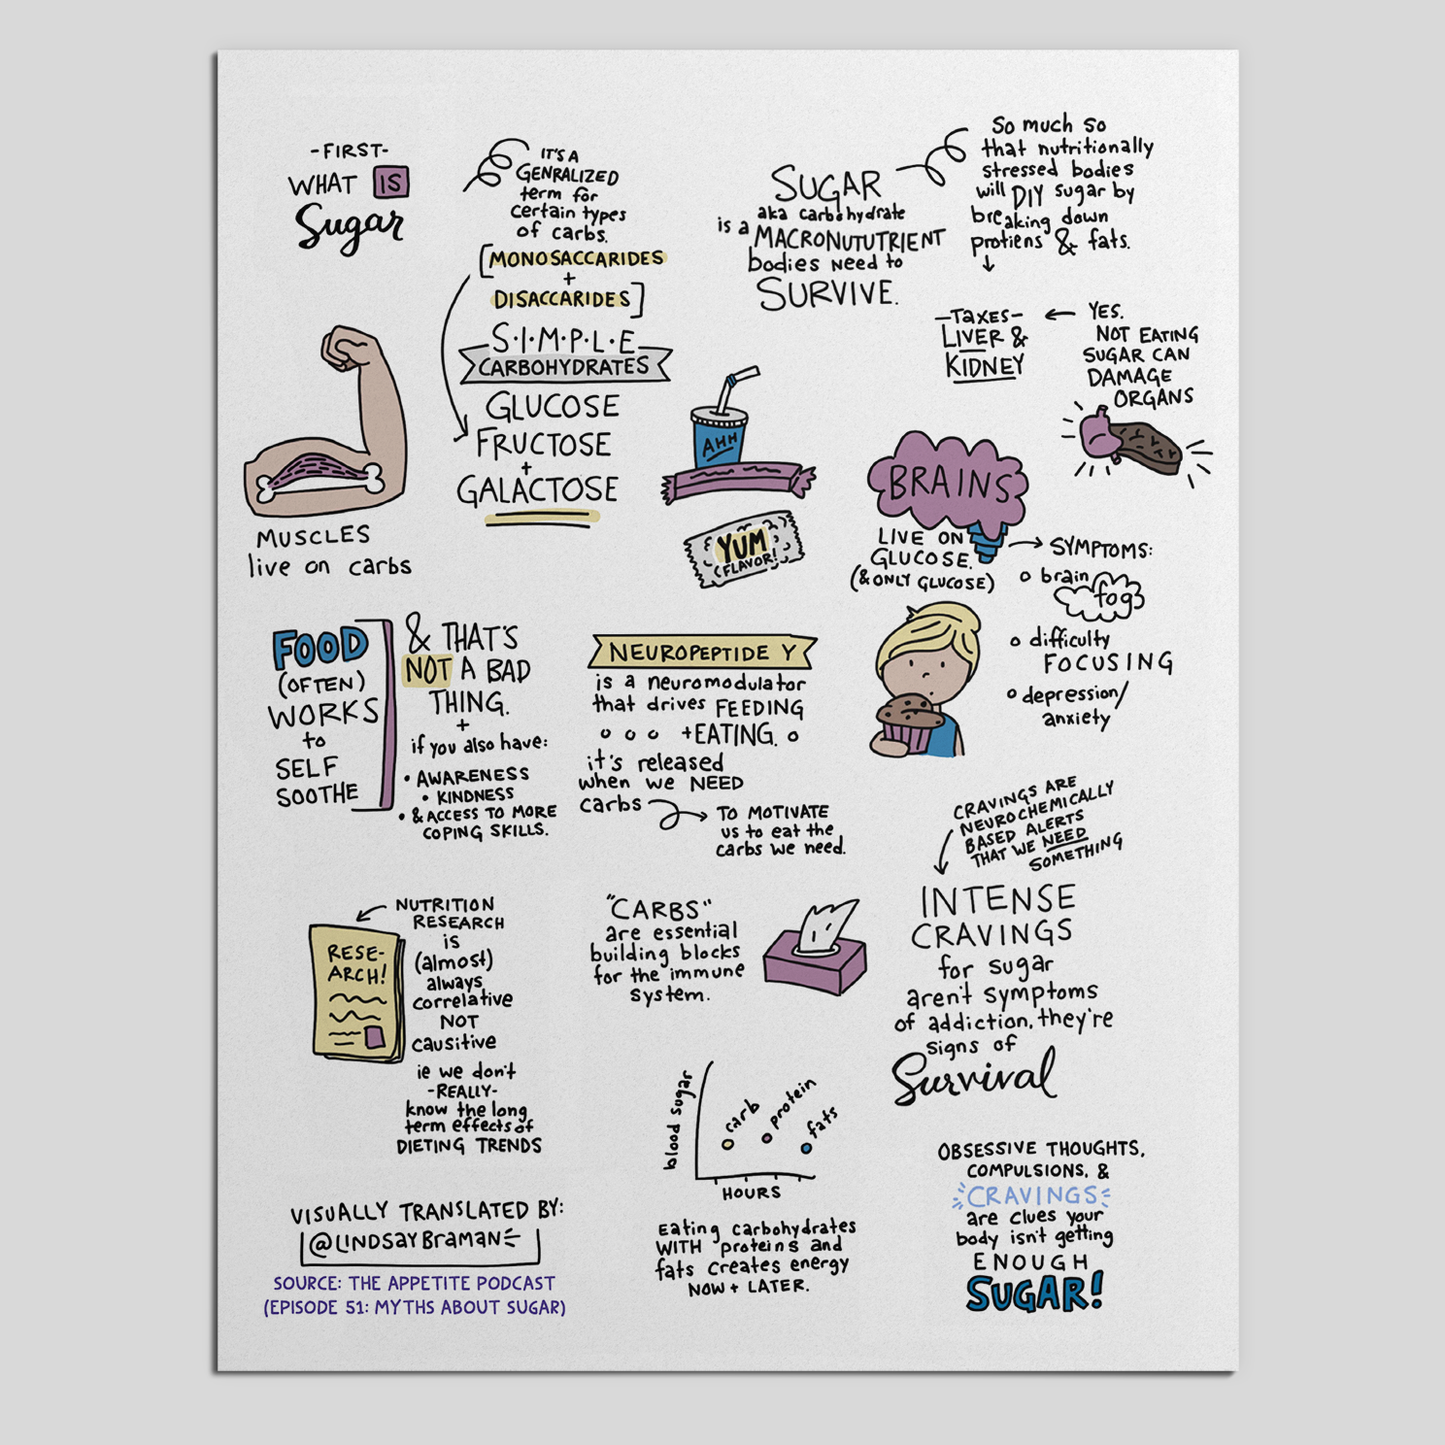 -FIRST-
WHAT IS
Sugar
IT'S A
GENRALIZED
term for
certain types
of carbs.
[MONOSACCARIDES
+
DISACCARIDES]
S·I·M·P·L·E
CARBOHYDRATES
GLUCOSE
FRUCTOSE
+
GALACTOSE
SUGAR
aka carbohydrate
is a MACRONUTUTRIENT
bodies need to
SURVIVE.
So much so
that nutritionally
stressed bodies
will DIY sugar by
breaking down
protiens & fats.
YES.
NOT EATING
SUGAR CAN
DAMAGE
ORGANS
-TAXES-
LIVER &
KIDNEY
MUSCLES
live on carbs
AHH
YUM
FLAVOR!
BRAINS
LIVE ON
GLUCOSE.
(& ONLY GLUCOSE)
SYMPTOMS:
brain
fog
difficulty
FOCUSING
depression/
anxiety
FOOD
(OFTEN)
WORKS
to
SELF
SOOTHE
& THAT'S
NOT A BAD
THING.
+
if you also have:
• AWARENESS
• KINDNESS
• & ACCESS TO MORE
COPING SKILLS.
NEUROPEPTIDE Y
is a neuromodulator
that drives FEEDING
+EATING.
it's released
when we NEED
carbs
TO MOTIVATE
us to eat the
carbs we need.
CRAVINGS ARE
NEUROCHEMICALLY
BASED ALERTS
THAT WE NEED
SOMETHING
INTENSE
CRAVINGS
for sugar
aren't symptoms
of addiction, they're
signs of
Survival
NUTRITION
RESEARCH
is
(almost)
always
correlative
NOT
causitive
ie we don't
-REALLY-
know the long
term effects of
DIETING TRENDS
RESE-
ARCH!
"CARBS"
are essential
building blocks
for the immune
system.
blood sugar
carb
protein
fats
HOURS
Eating carbohydrates
WITH proteins and
fats creates energy
NOW + LATER.
OBSESSIVE THOUGHTS,
COMPULSIONS, &
CRAVINGS
are clues your
body isn't getting
ENOUGH
SUGAR!
VISUALLY TRANSLATED BY:
@LINDSAYBRAMAN
SOURCE: THE APPETITE PODCAST
(EPISODE 51: MYTHS ABOUT SUGAR)